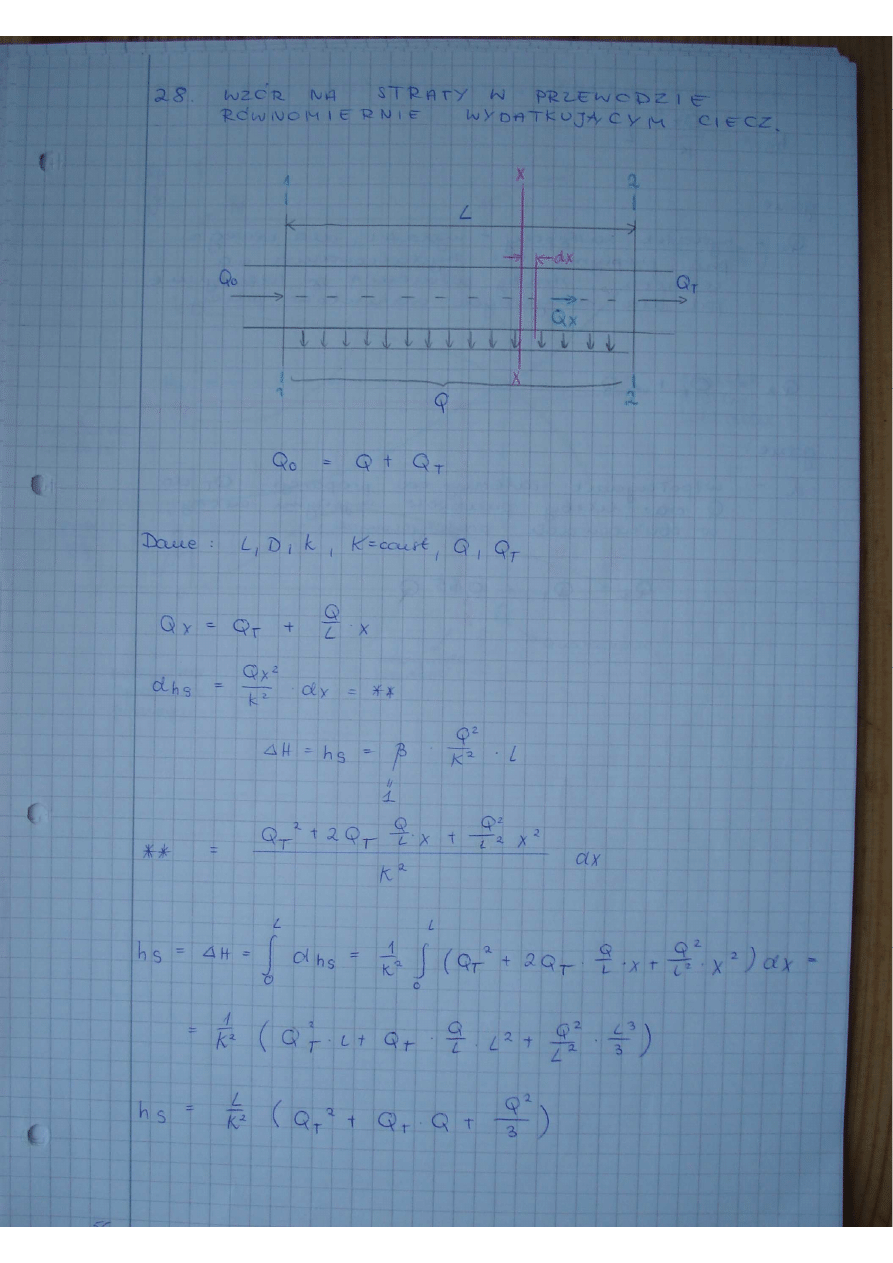 28. WZÓR NA STRATY W PRZEWODZIE
RÓWNOMIERNIE WYDATKUJĄCYM CIECZ.
1 X 2
L
dx
Q₀ Q_T
Qx
1 X 2
Q
Q₀ = Q + Q_T
Dane : L, D, k, K=const, Q, Q_T
Qx = Q_T + Q/L · x
dhs = Qx²/K² · dx = **
ΔH = hs = β · Q²/K² · L
"
1
** = (Q_T² + 2Q_T Q/L · x + Q²/L² x²)/K² dx
hs = ΔH = ∫₀ᴸ dhs = 1/K² ∫₀ᴸ (Q_T² + 2Q_T · Q/L · x + Q²/L² · x²) dx =
= 1/K² (Q_T² · L + Q_T · Q/L · L² + Q²/L² · L³/3)
hs = L/K² (Q_T² + Q_T · Q + Q²/3)